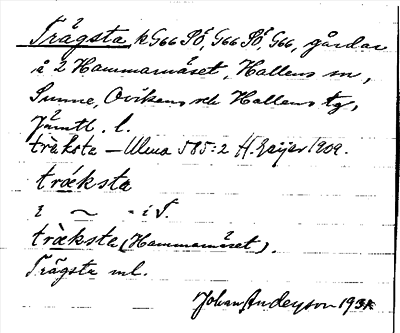 Trägsta k G66 SÖ, G66 SÖ, G66, gårdar
å Hammarnäset, Hallens sn,
Sunne, Ovikens och Hallens tg,
Jämtl. l.
träksta — Ulma 585:2 H. Geijer 1909.
träksta
i ~ - i T.
träkste (Hammarnäset).
Trägsta ml.
Johan Anderson 193